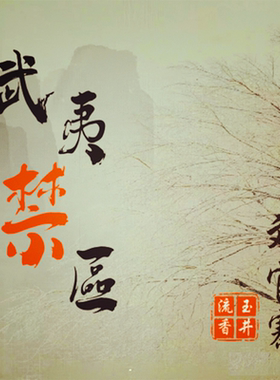 武夷禁區
玉井
流香